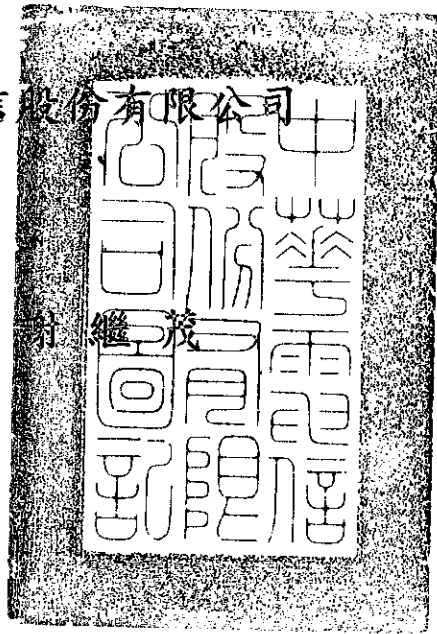 信股份有限公司
謝繼茂
中華電信
股份有限
公司圖記